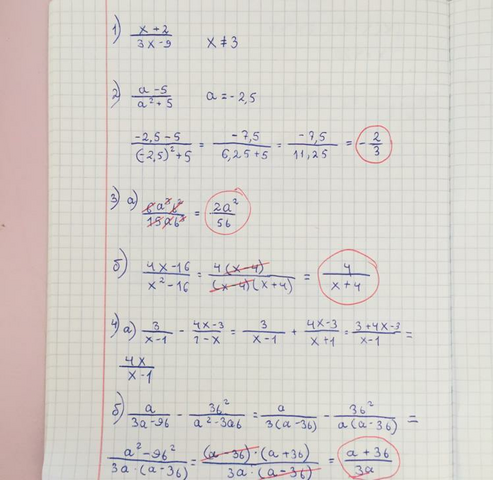 1) (x+2)/(3x-9) x≠3
2) (a-5)/(a²+5) a=-2,5
(-2,5-5)/((-2,5)²+5) = (-7,5)/(6,25+5) = (-7,5)/(11,25) = -2/3
3) а) (6a³b²)/(15ab³) = 2a²/5b
б) (4x-16)/(x²-16) = (4(x-4))/((x-4)(x+4)) = 4/(x+4)
4) а) 3/(x-1) - (4x-3)/(1-x) = 3/(x-1) + (4x-3)/(x+1) = (3+4x-3)/(x-1) =
4x/(x-1)
б) a/(3a-9b) - 3b²/(a²-3ab) = a/(3(a-3b)) - 3b²/(a(a-3b)) =
(a²-9b²)/(3a·(a-3b)) = ((a-3b)·(a+3b))/(3a·(a-3b)) = (a+3b)/3a